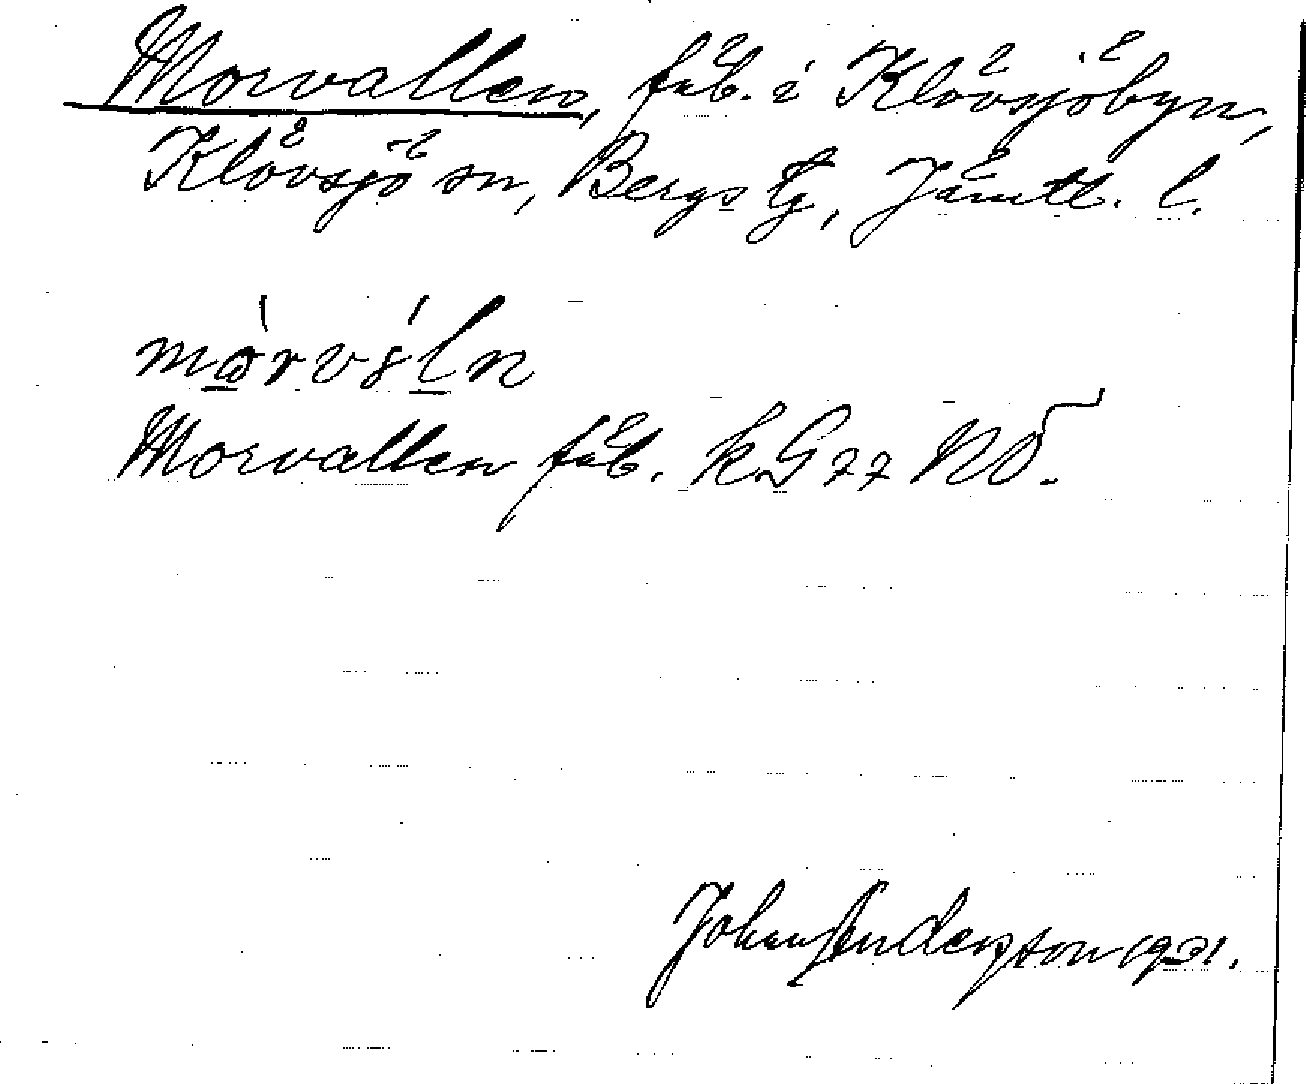 Morvallen, fäb. i Klövsjöbyn,
Klövsjö sn, Bergs tg, Jämtl. l.
Morvallen fäb. k. G 77 NO.
Johan Anderzson 1921.